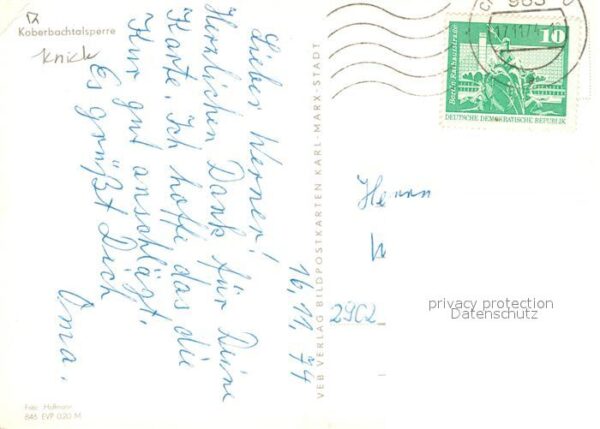 Koberbachtalsperre
Knick
16,11,74
Lieber Werner!
Herzlichen Dank für Deine
Karte. Ich hoffe das die
Kur gut anschlägt.
Es grüßt Dich
Oma.
VEB VERLAG BILDPOSTKARTEN KARL-MARX-STADT
10
Berlin Rathausstraße
DEUTSCHE DEMOKRATISCHE REPUBLIK
Herrn
W
2902
privacy protection
Datenschutz
Foto: Hoffmann
845 EVP 0,20 M